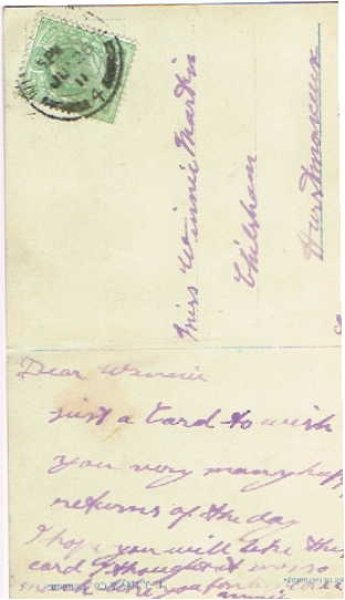 Miss Winnie Martin
Chilsham
Hurstmonceux
Dear Winnie
just a Card to wish
you very many hap
returns of the day
I hope you will like this
card I thought it was so